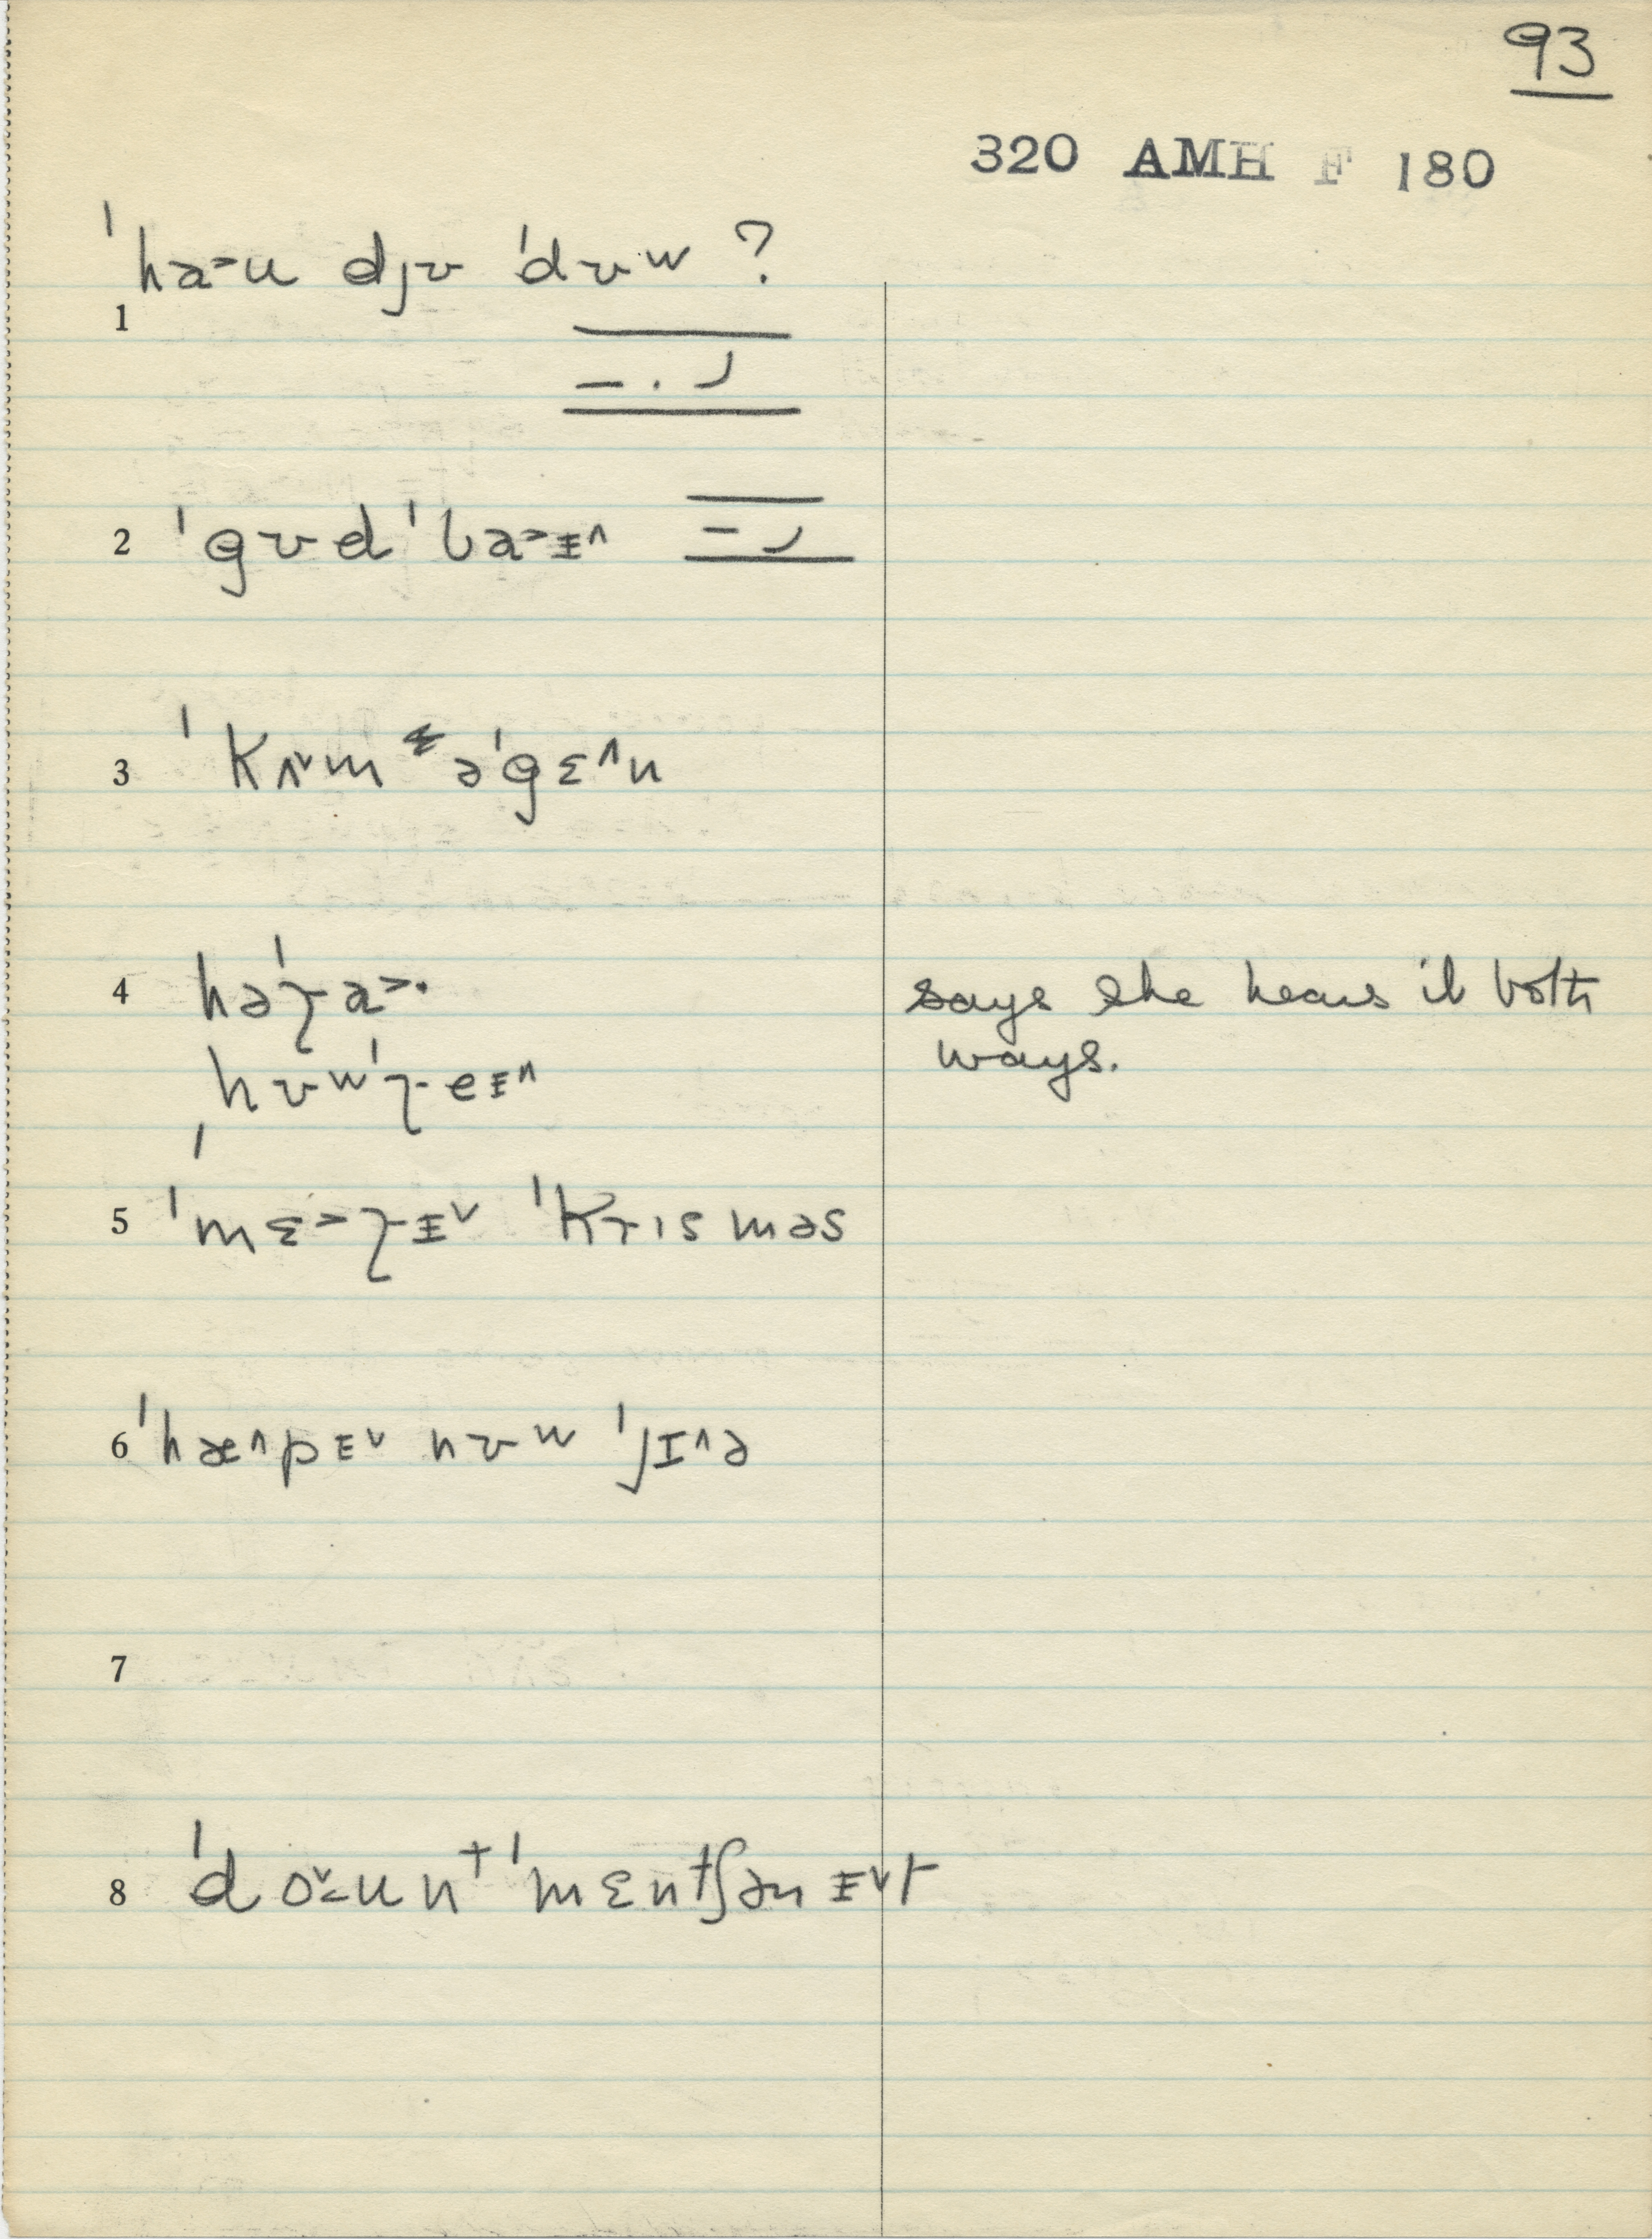 93
320 AMH F 180
ˈha˃u djʊ ˈdʊw ?
1
2 ˈgʊd ˈba˃ɪ^
3 ˈkʌ˅m əˈgɛ^n
4 həˈɾa˃· says she hears it both
hʊwˈɾeɪ^ ways.
5 ˈmɛ˃ɾɪ˅ ˈkrɪsməs
6 ˈhæ^pɪ˅ nʊw ˈjɪ^ə
7
8 ˈdo˅unt ˈmɛntʃənɪ˅t